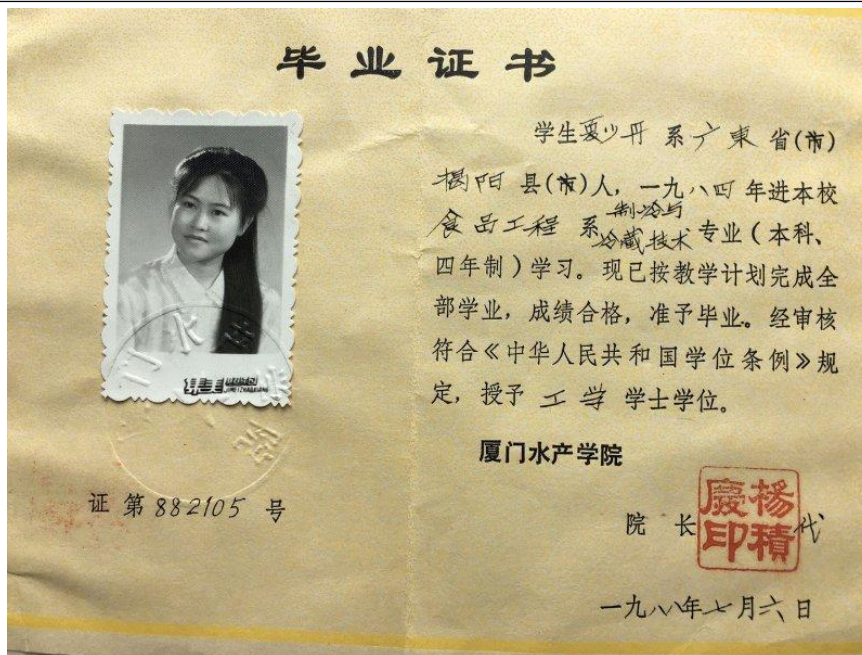 毕业证书
学生 少丹 系广東省(市)
揭阳县(市)人，一九八四年进本校
食品工程系制冷与冷藏技术专业（本科、
四年制）学习。现已按教学计划完成全
部学业，成绩合格，准予毕业。经审核
符合《中华人民共和国学位条例》规
定，授予工学学士学位。
厦门水产学院
院长 代
楊積慶印
一九八八年七月六日
证第882105号